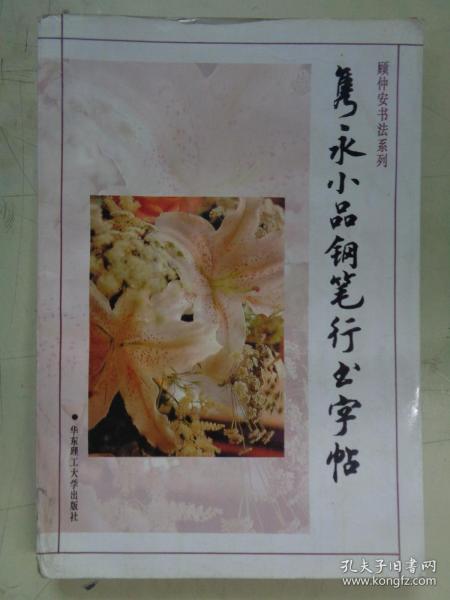 顾仲安书法系列
隽永小品钢笔行书字帖
•华东理工大学出版社
孔夫子旧书网
www.kongfz.com